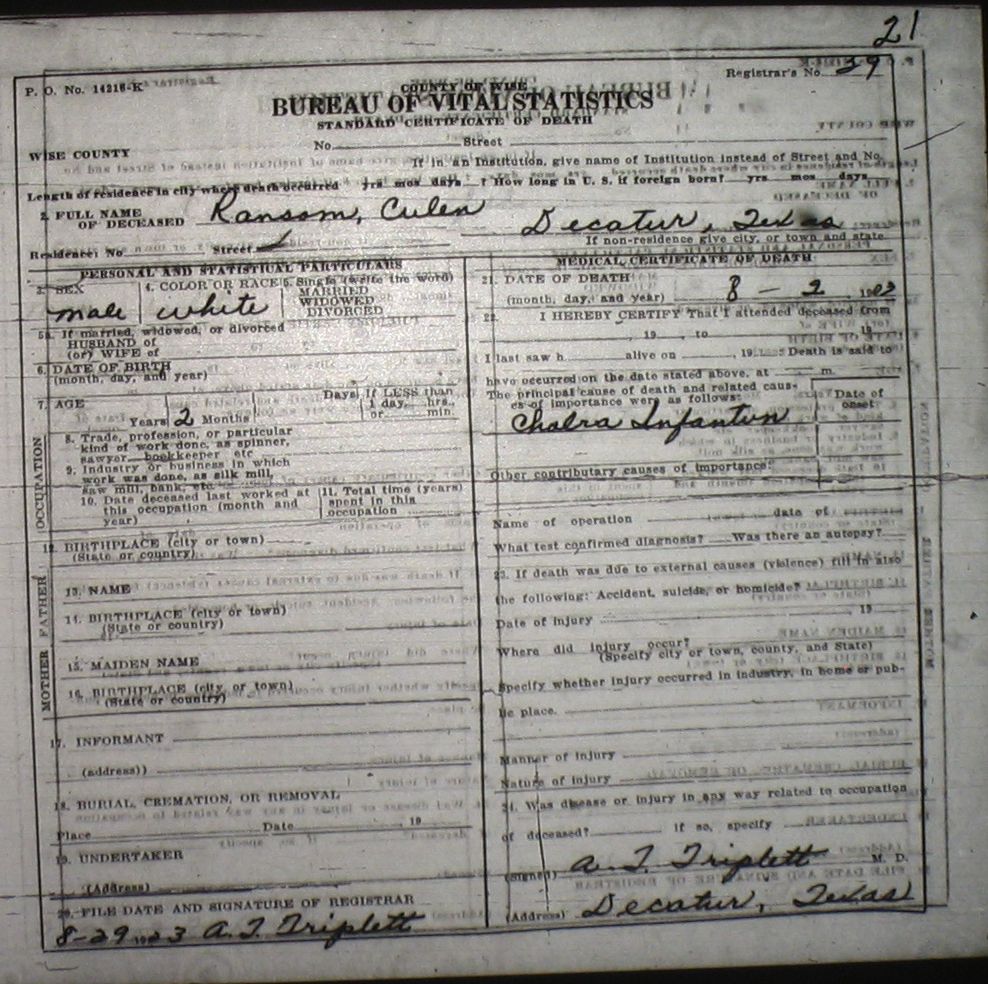 21
P. O. No. 14216-K
Registrar's No. 39
COUNTY OF WISE
BUREAU OF VITAL STATISTICS
STANDARD CERTIFICATE OF DEATH
No. Street
WISE COUNTY
If in an Institution, give name of Institution instead of Street and No.
Length of residence in city where death occurred yrs mos days ? How long in U. S. if foreign born? yrs mos days
2. FULL NAME OF DECEASED Ransom, Culen Decatur, Texas
Residence: No Street If non-residence give city, or town and state
PERSONAL AND STATISTICAL PARTICULARS
3. SEX male
4. COLOR OR RACE white
5. Single (write the word)
MARRIED
WIDOWED
DIVORCED
5a. If married, widowed, or divorced
HUSBAND of
(or) WIFE of
6. DATE OF BIRTH
(month, day, and year)
7. AGE
Years 2 Months Days If LESS than
1 day, hrs.,
or min.
OCCUPATION
8. Trade, profession, or particular
kind of work done, as spinner,
sawyer bookkeeper etc
9. Industry or business in which
work was done, as silk mill,
saw mill, bank, etc.
10. Date deceased last worked at
this occupation (month and
year)
11. Total time (years)
spent in this
occupation
12. BIRTHPLACE (city or town)
(State or country)
FATHER
13. NAME
14. BIRTHPLACE (city or town)
(State or country)
MOTHER
15. MAIDEN NAME
16. BIRTHPLACE (city or town)
(State or country)
17. INFORMANT
(address))
18. BURIAL, CREMATION, OR REMOVAL
Place Date 19
19. UNDERTAKER
(Address)
20. FILE DATE AND SIGNATURE OF REGISTRAR
8-29 1923 A. T. Triplett
MEDICAL CERTIFICATE OF DEATH
21. DATE OF DEATH
(month, day, and year) 8 - 2
22. I HEREBY CERTIFY That I attended deceased from
, 19 , to , 19
I last saw h alive on , 19 Death is said to
have occurred on the date stated above, at m.
The principal cause of death and related caus-
es of importance were as follows:
Date of
onset
Cholra Infantun
Other contributary causes of importance:
Name of operation date of
What test confirmed diagnosis? Was there an autopsy?
23. If death was due to external causes (violence) fill in also
the following: Accident, suicide, or homicide?
Date of injury , 19
Where did injury occur?
(Specify city or town, county, and State)
Specify whether injury occurred in industry, in home or pub-
lic place.
Manner of injury
Nature of injury
24. Was disease or injury in any way related to occupation
of deceased? if so, specify
(Signed) A. T. Triplett M. D.
(Address) Decatur, Texas